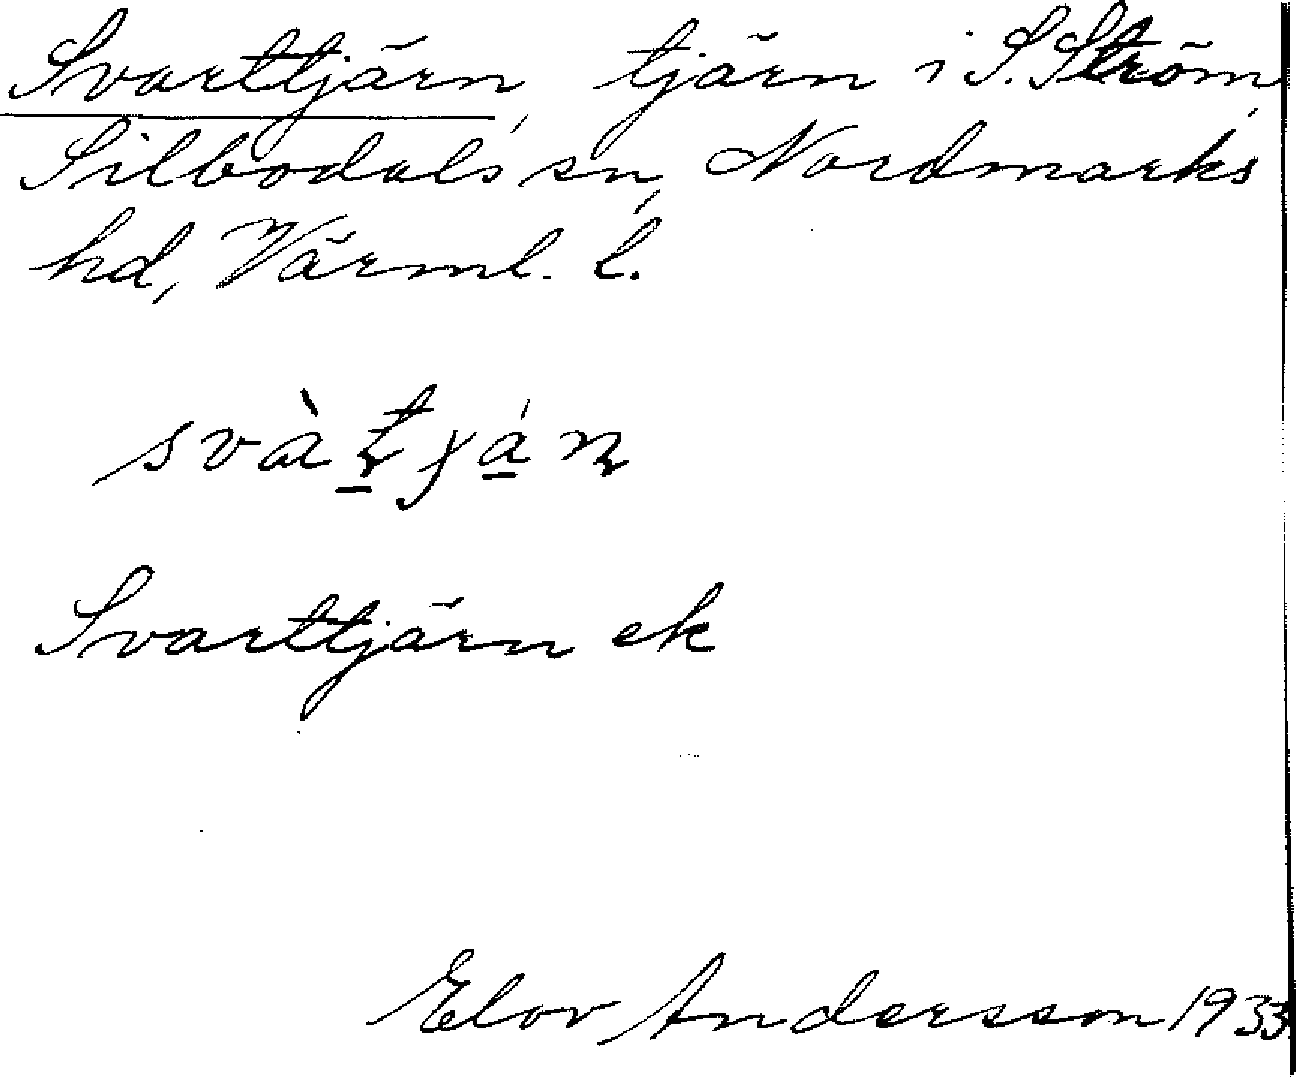 Svarttjärn, tjärn i S. Ström,
Silbodals sn, Nordmarks
hd, Värml. l.
svàʈján
Svarttjärn ek
Elov Andersson 1933